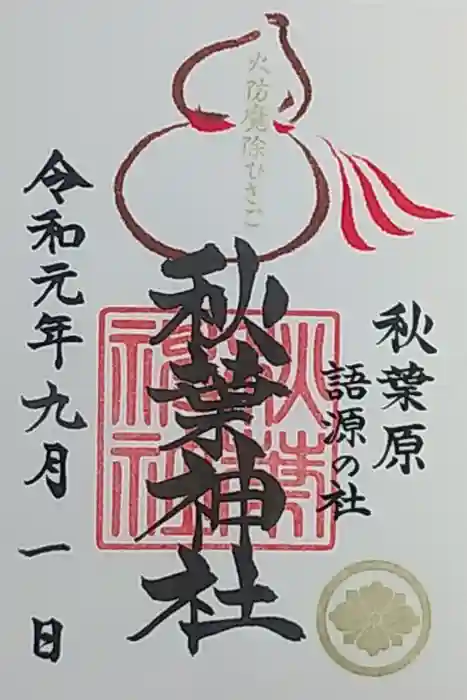 火防魔除ひさご
秋葉原
語源の社
秋葉神社
令和元年九月一日